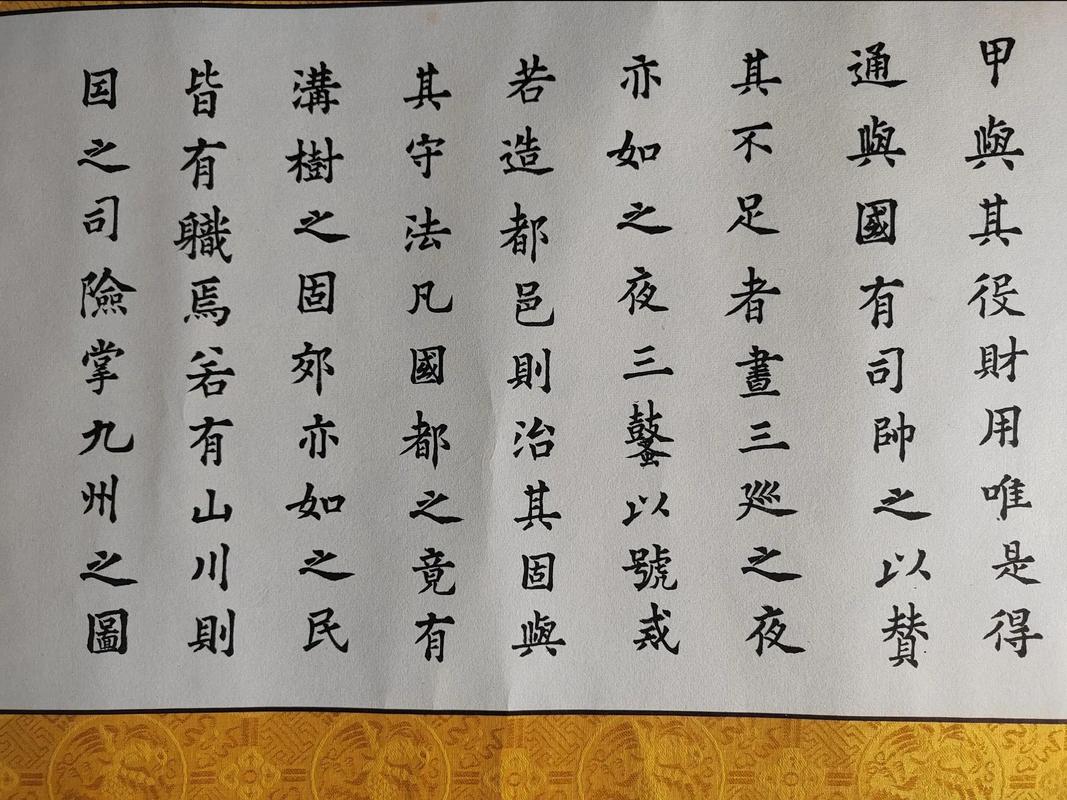 甲與其役財用唯是得
通與國有司帥之以賛
其不足者晝三巡之夜
亦如之夜三鼜以號戒
若造都邑則治其固與
其守法凡國都之竟有
溝樹之固郊亦如之民
皆有職焉若有山川則
囯之司險掌九州之圖